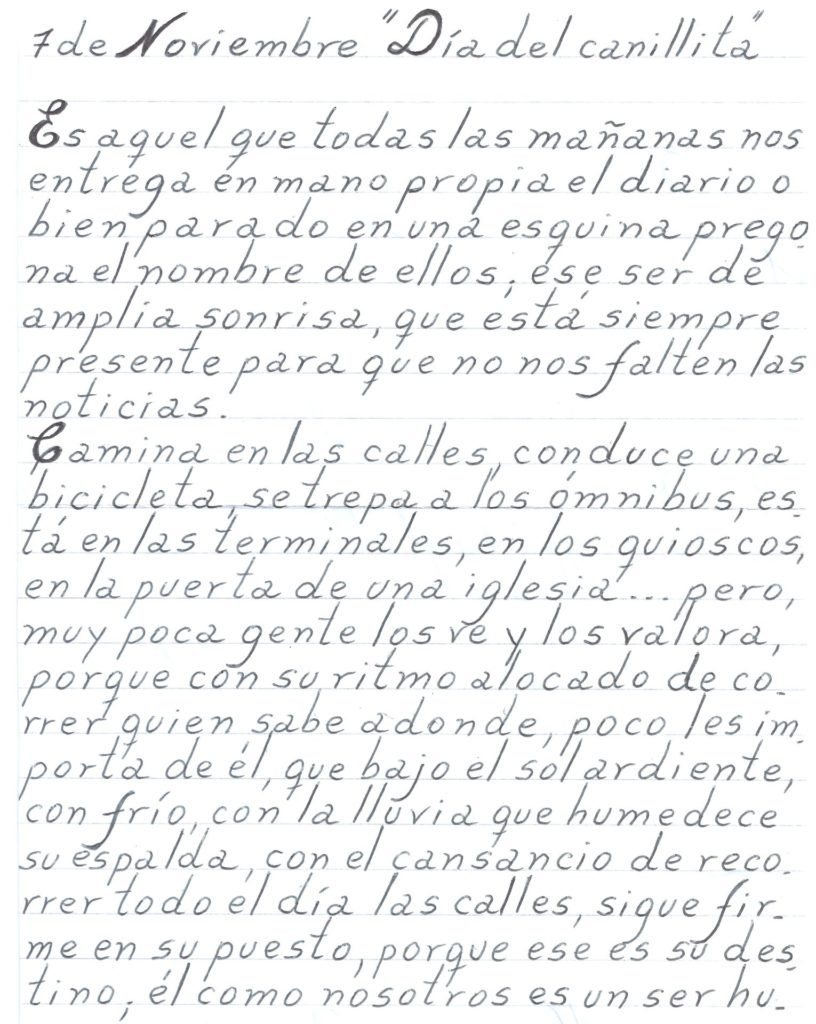 7 de Noviembre "Día del canillita"
Es aquel que todas las mañanas nos
entrega en mano propia el diario o
bien parado en una esquina prego-
na el nombre de ellos; ese ser de
amplia sonrisa, que está siempre
presente para que no nos falten las
noticias.
Camina en las calles, conduce una
bicicleta, se trepa a los ómnibus, es-
tá en las terminales, en los quioscos,
en la puerta de una iglesia... pero,
muy poca gente los ve y los valora,
porque con su ritmo alocado de co-
rrer quien sabe adonde, poco les im-
porta de él, que bajo el sol ardiente,
con frío, con la lluvia que humedece
su espalda, con el cansancio de reco-
rrer todo el día las calles, sigue fir-
me en su puesto, porque ese es su des-
tino; él como nosotros es un ser hu-